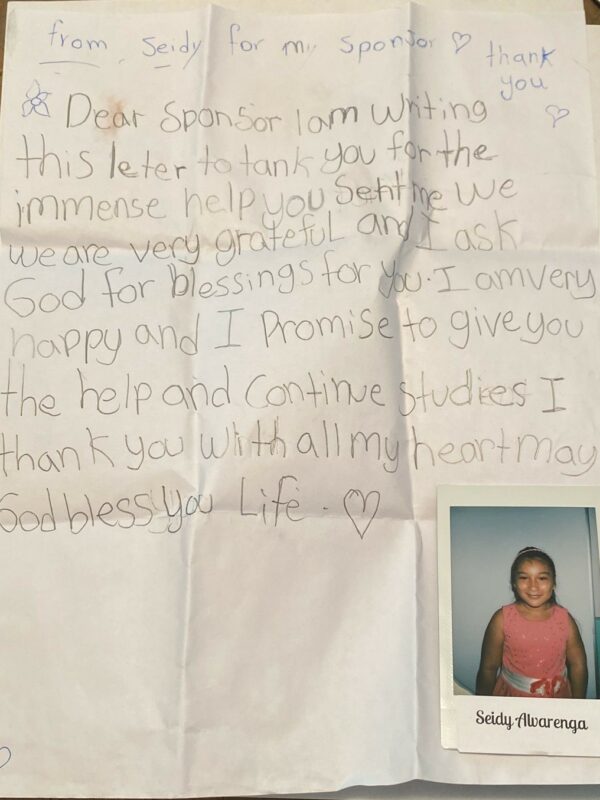 from Seidy for my sponsor ♡
thank
you
♡
Dear Sponsor I am writing
this leter to tank you for the
immense help you Sent me We
we are very grateful and I ask
God for blessings for you. I am very
happy and I Promise to give you
the help and Continue studies I
thank you With all my heart may
God bless you Life. ♡
Seidy Alvarenga